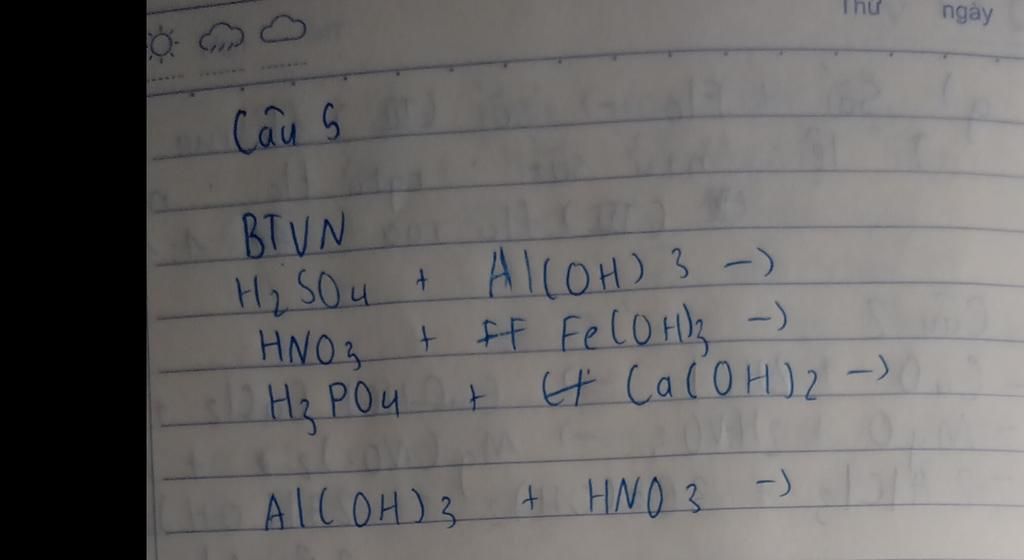 Thứ ngày
Câu 5
BTVN
H₂SO₄ + Al(OH)3 →
HNO₃ + Fe(OH)₃ →
H₃PO₄ + Ca(OH)₂ →
Al(OH)₃ + HNO₃ →